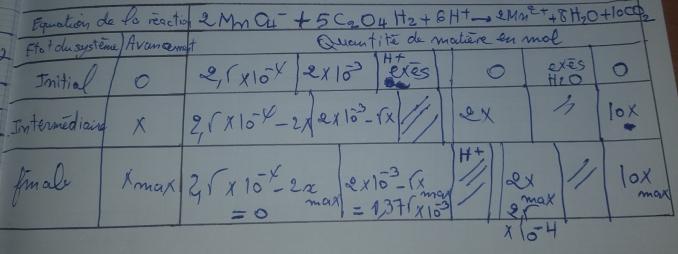 Equation de la réaction 2MnO4- + 5C2O4H2 + 6H+ → 2Mn2+ + 8H2O + 10CO2
Etat du système Avancement Quantité de matière en mol
Initial 0 2,5 x 10-4 2 x 10-3 H+ exès 0 exès H2O 0
Intermédiaire x 2,5 x 10-4 - 2x 2 x 10-3 - 5x 2x // 10x
finale xmax 2,5 x 10-4 - 2x max 2 x 10-3 - 5x max H+ 2x max // 10x max
= 0 = 1,375 x 10-3 2,5
x 10-4